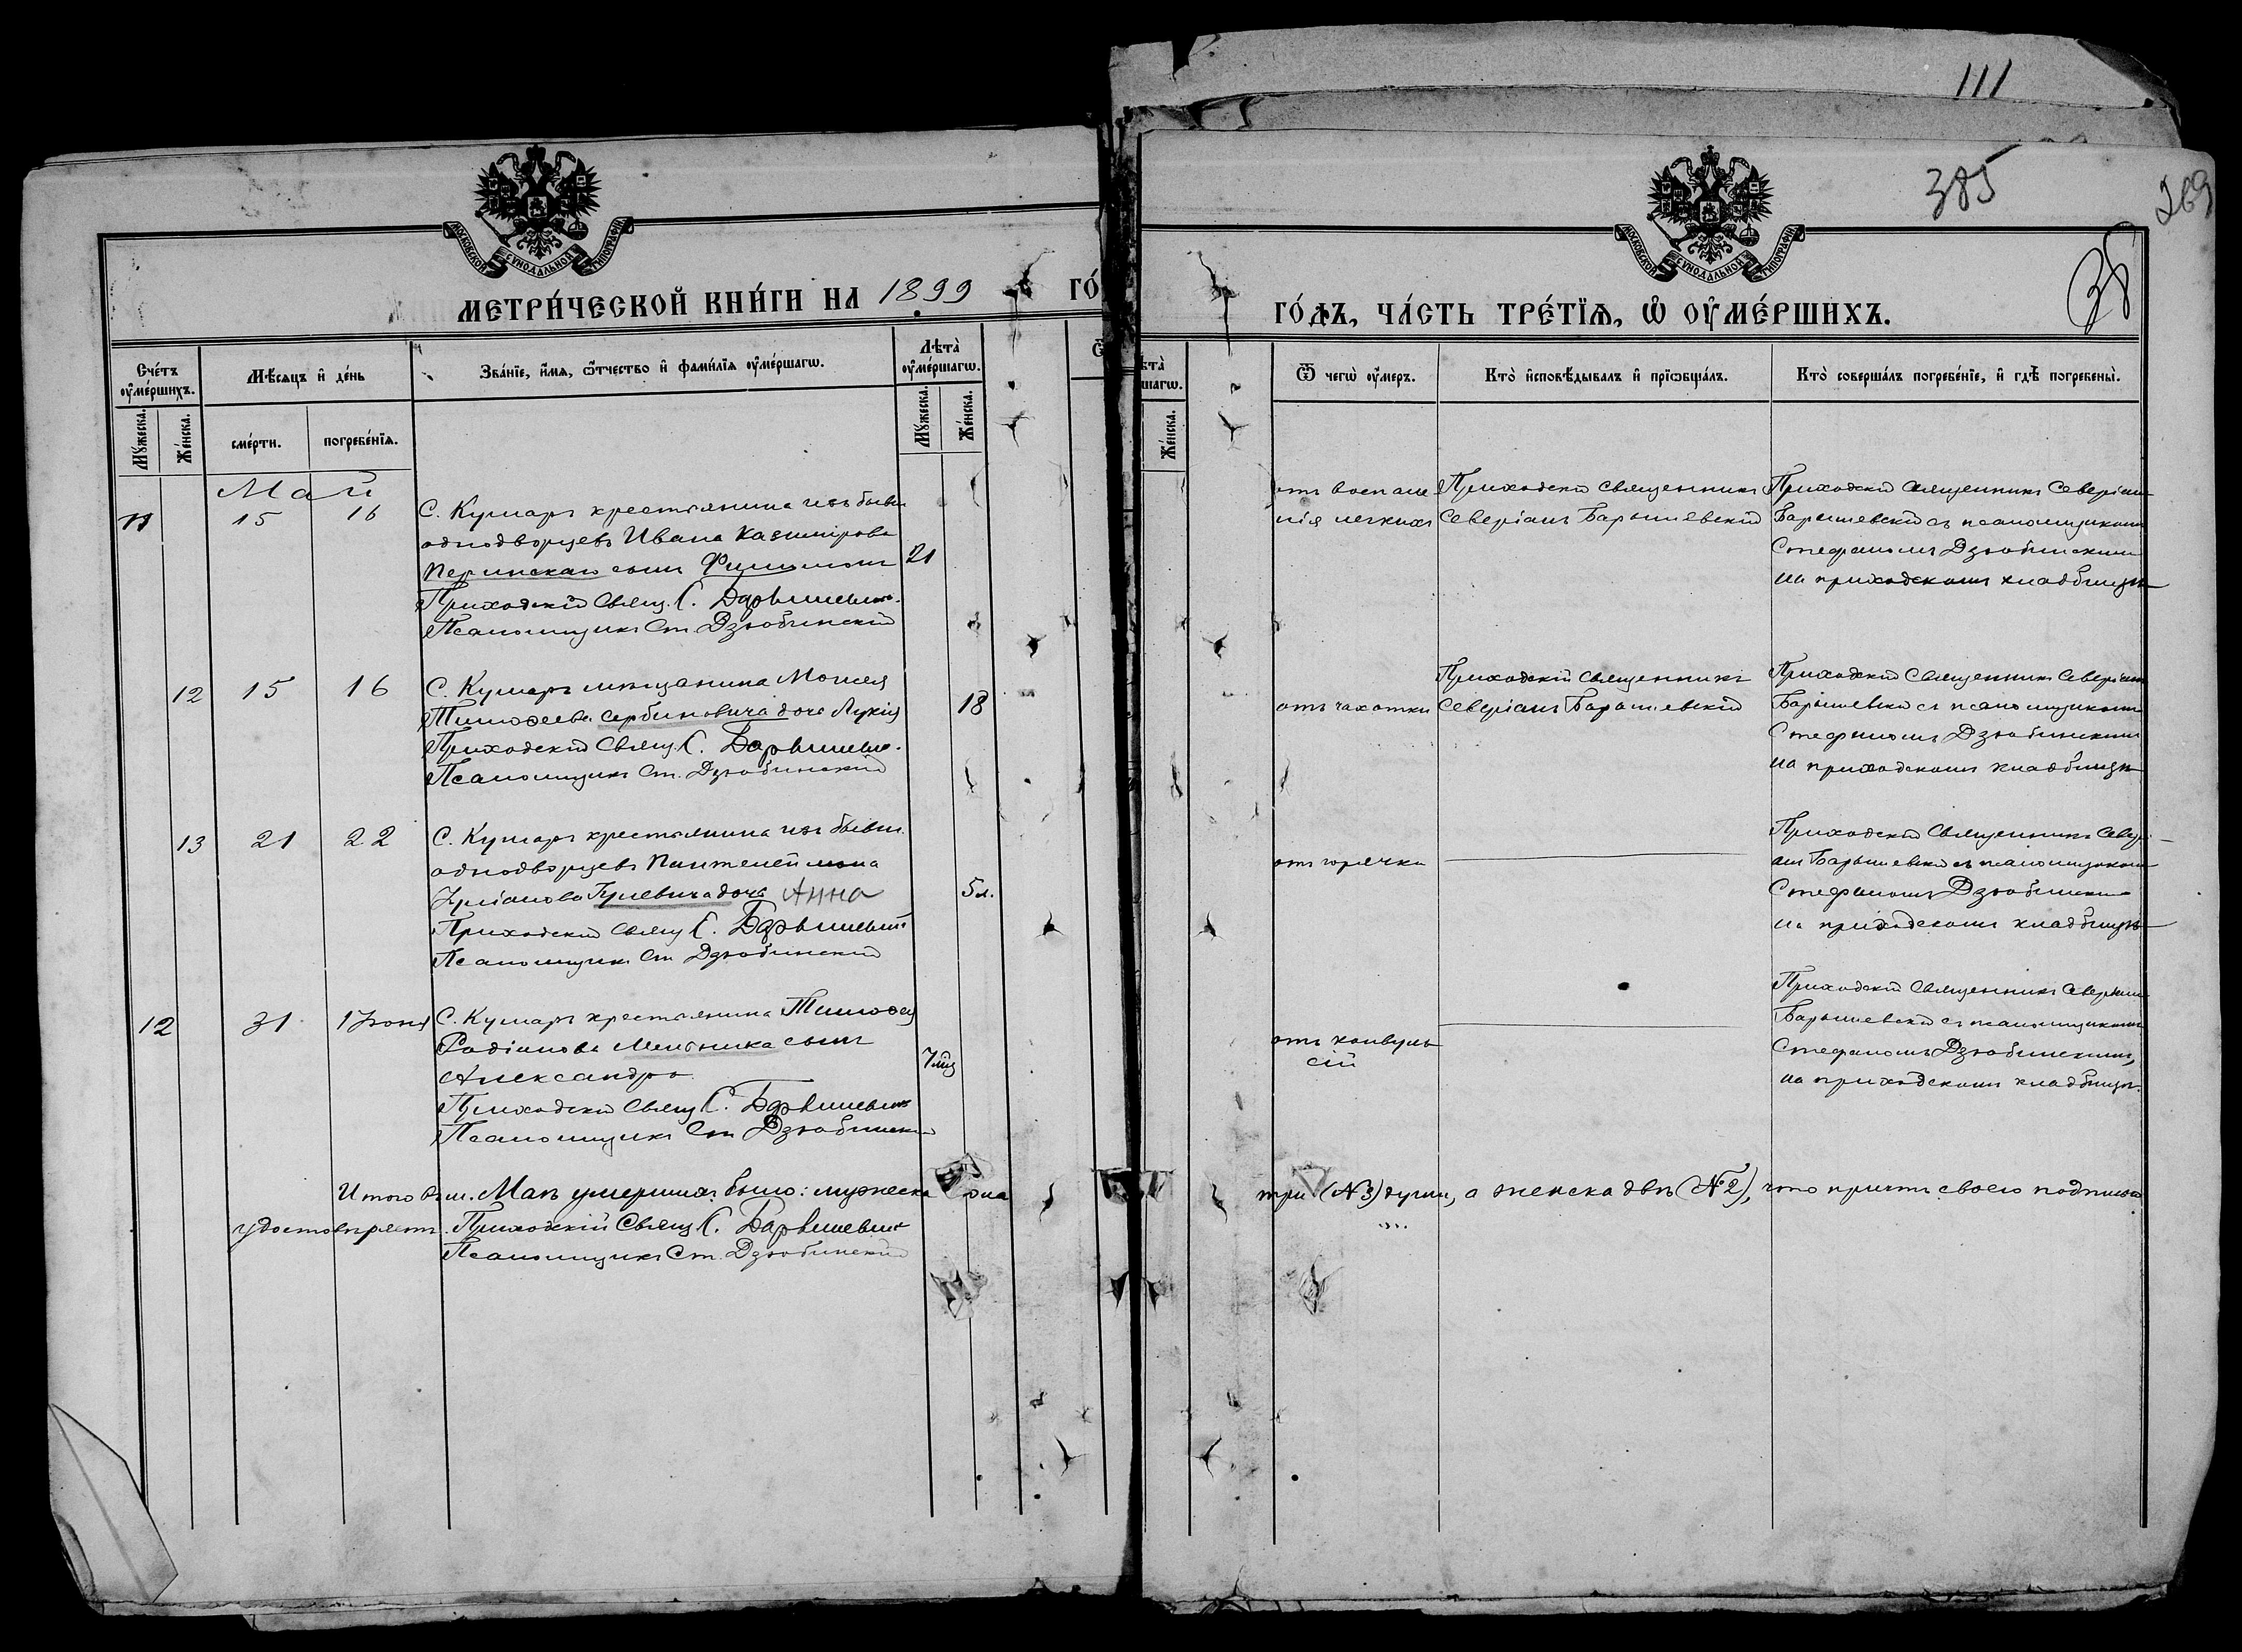 111
385
269
38
МОСКОВСКОЙ СѴНОДАЛЬНОЙ ТИПОГРАФІИ
МОСКОВСКОЙ СѴНОДАЛЬНОЙ ТИПОГРАФІИ
МЕТРИ́ЧЕСКОЙ КНИ́ГИ НА 1899 ГО́
ГО́ДЪ, ЧА́СТЬ ТРЕ́ТЇѦ, Ѡ҆ ОУ҆МЕ́РШИХЪ.
Сче́тъ оу҆ме́ршихъ.
Мꙋ́жеска.
Же́нска.
Мѣ́сяцъ и҆ де́нь
сме́рти.
погребе́нїѧ.
Зва́нїе, и҆́мѧ, ѻ҆́тчество и҆ фами́лїѧ оу҆ме́ршагѡ.
Лѣ́та оу҆ме́ршагѡ.
Мꙋ́жеска.
Же́нска.
Же́нска.
Ѿ чегѡ̀ оу҆́меръ.
Кто̀ и҆сповѣ́дывалъ и҆ прїѡбща́лъ.
Кто̀ соверша́лъ погребе́нїе, и҆ гдѣ̀ погребены̀.
Май
11 15 16
С. Кумаръ крестьянина изъ бывш
однодворцевъ Ивана Казимірова
сынъ Филимонъ 21
Приходскій Свящ. С. Барышевскій
Псаломщикъ Ст. Дзюбинскій
отъ воспале
нія легкихъ
Приходскій Священникъ
Северіанъ Барышевскій
Приходскій Священникъ Северіанъ
Барышевскій съ псаломщикомъ
Стефаномъ Дзюбинскимъ
на приходскомъ кладбищѣ
12 15 16
С. Кумаръ мѣщанина Моисея
Тимоѳеева Сербиновича дочь Лукія 18
Приходскій Свящ. С. Барышевскій
Псаломщикъ Ст. Дзюбинскій
отъ чахотки
Приходскій Священникъ
Северіанъ Барышевскій
Приходскій Священникъ Северіанъ
Барышевскій съ псаломщикомъ
Стефаномъ Дзюбинскимъ
на приходскомъ кладбищѣ
13 21 22
С. Кумаръ крестьянина изъ бывш.
однодворцевъ Пантелеймона
дочь Анна 5л.
Приходскій Свящ С. Барышевскій
Псаломщикъ Ст Дзюбинскій
отъ горячки
Приходскій Священникъ Севері
анъ Барышевскій съ псаломщикомъ
Стефаномъ Дзюбинским
на приходскомъ кладбищѣ
12 31 1 Іюня
С. Кумаръ крестьянина Тимоѳея
Родіонова Мельника сынъ
Александръ 7 мц
Приходскій Свящ С. Барышевскій
Псаломщикъ Ст Дзюбинскій
отъ конвуль
сій
Приходскій Священникъ Северіанъ
Барышевскій съ псаломщикомъ
Стефаномъ Дзюбинскимъ,
на приходскомъ кладбищѣ.
Итого въ м. Маѣ умершихъ было: мужеска пола три (№3) души, а женска двѣ (№2), что причтъ своею подписью
удостовѣряетъ. Приходскій Свящ С. Барышевскій
Псаломщикъ Ст. Дзюбинскій